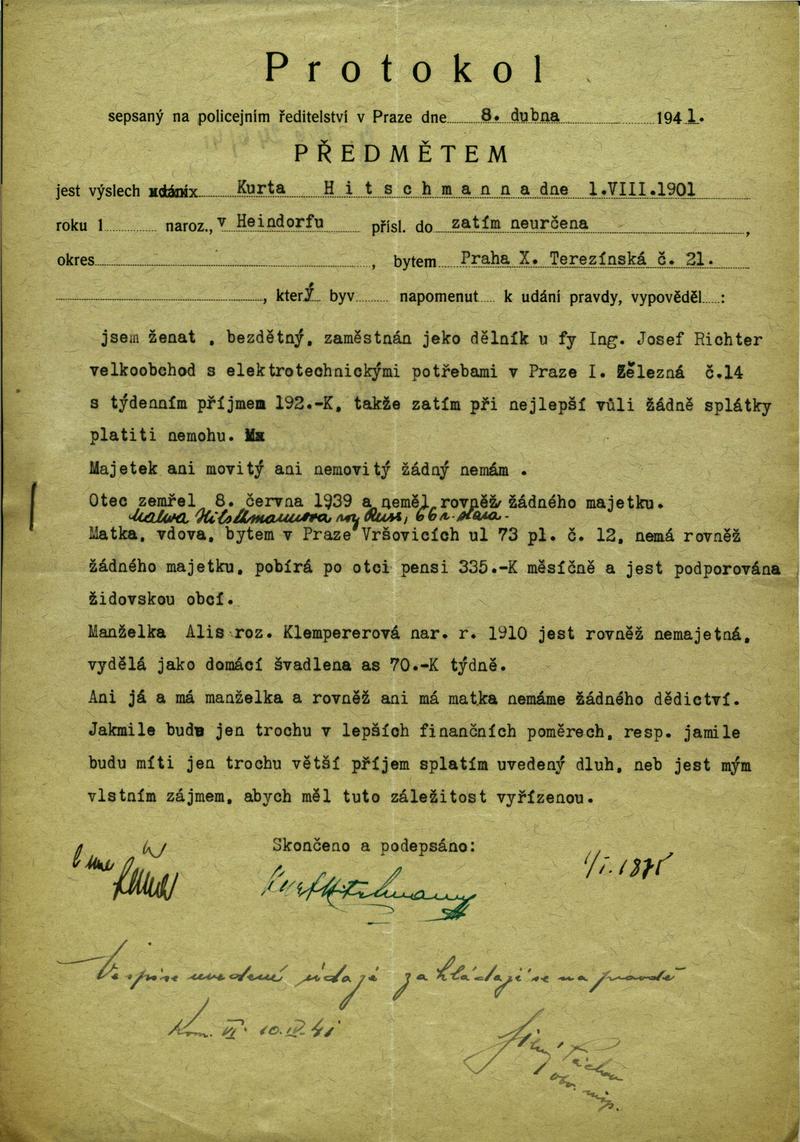 Protokol
sepsaný na policejním ředitelství v Praze dne 8. dubna 1941.
PŘEDMĚTEM
jest výslech Kurta Hitschmanna dne 1.VIII.1901
roku 1 naroz., v Heindorfu přísl. do zatím neurčena,
okres, bytem Praha X. Terezínská č. 21.
, který byv napomenut k udání pravdy, vypověděl :
jsem ženat , bezdětný, zaměstnán jeko dělník u fy Ing. Josef Richter
velkoobchod s elektrotechnickými potřebami v Praze I. Železná č.14
s týdenním příjmem 192.-K, takže zatím při nejlepší vůli žádně splátky
platiti nemohu.
Majetek ani movitý ani nemovitý žádný nemám .
Otec zemřel 8. června 1939 a neměl rovněž žádného majetku.
Matka, vdova, bytem v Praze Vršovicích ul 73 pl. č. 12, nemá rovněž
žádného majetku, pobírá po otci pensi 335.-K měsíčně a jest podporována
židovskou obcí.
Manželka Alis roz. Klempererová nar. r. 1910 jest rovněž nemajetná,
vydělá jako domácí švadlena as 70.-K týdně.
Ani já a má manželka a rovněž ani má matka nemáme žádného dědictví.
Jakmile budu jen trochu v lepších finančních poměrech, resp. jamile
budu míti jen trochu větší příjem splatím uvedený dluh, neb jest mým
vlstním zájmem, abych měl tuto záležitost vyřízenou.
Skončeno a podepsáno:
1/I.1875
uvedené údaje zakládají se na pravdě
Kom. VI. 10.IV.41